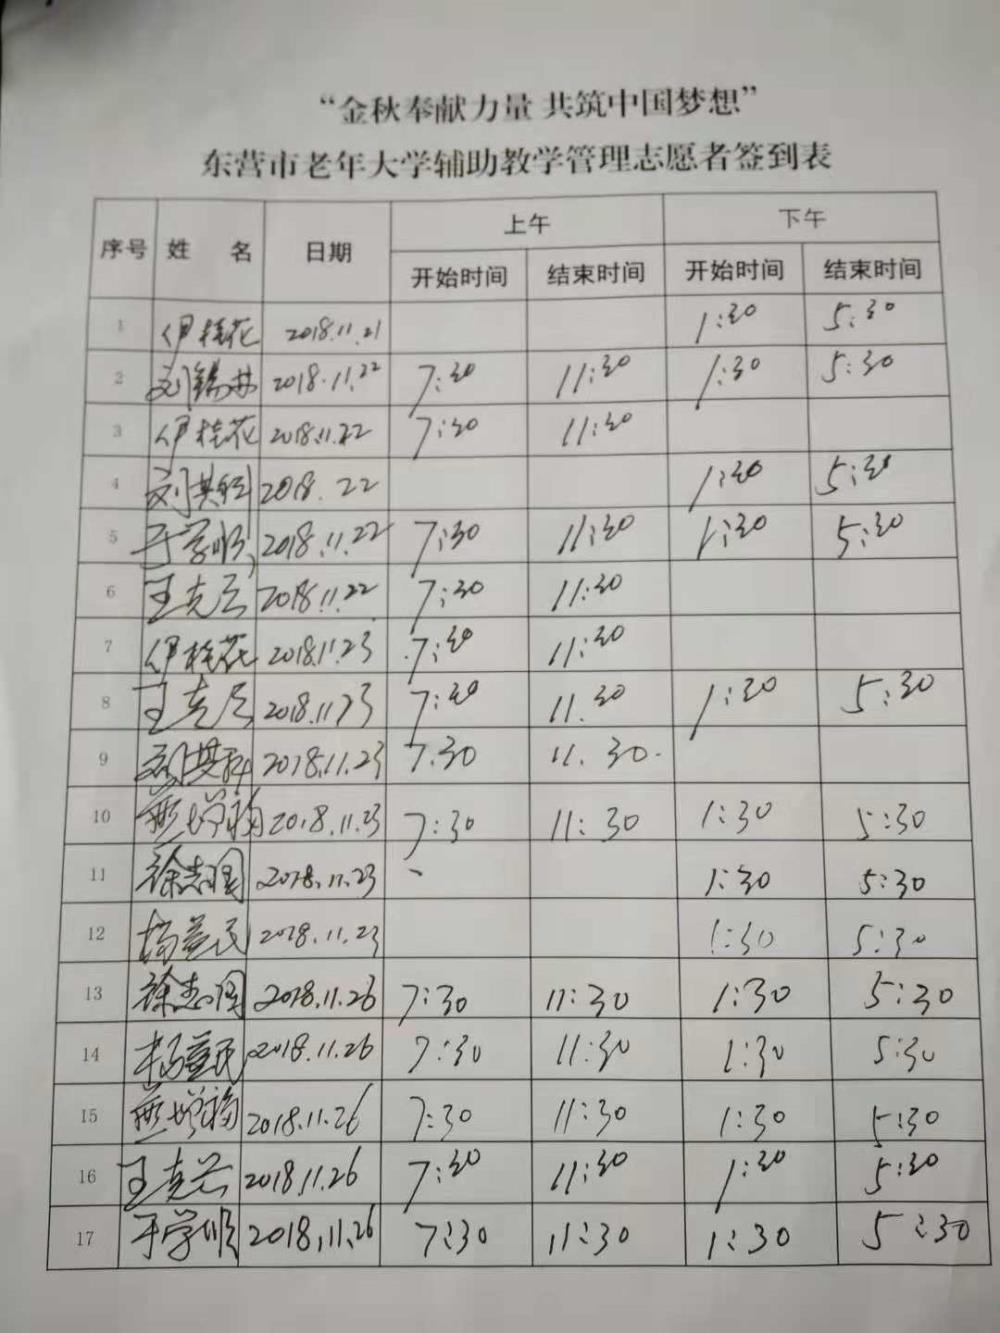 “金秋奉献力量 共筑中国梦想”
东营市老年大学辅助教学管理志愿者签到表
序号 姓 名 日期 上午 下午
开始时间 结束时间 开始时间 结束时间
1 伊桂花 2018.11.21 1:30 5:30
2 刘锡 2018.11.22 7:30 11:30 1:30 5:30
3 伊桂花 2018.11.22 7:30 11:30
4 刘其科 2018.22 1:30 5:30
5 于学顺 2018.11.22 7:30 11:30 1:30 5:30
6 王克 2018.11.22 7:30 11:30
7 伊桂花 2018.11.23 7:30 11:30
8 王克 2018.11 23 7:30 11.30 1:30 5:30
9 刘其科 2018.11.23 7.30 11.30.
10 燕增福 2018.11.23 7:30 11:30 1:30 5:30
11 徐志国 2018.11.23 1:30 5:30
12 杨益民 2018.11.23 1:30 5:30
13 徐志国 2018.11.26 7:30 11:30 1:30 5:30
14 杨益民 2018.11.26 7:30 11:30 1:30 5:30
15 燕增福 2018.11.26 7:30 11:30 1:30 5:30
16 王克 2018.11.26 7:30 11:30 1:30 5:30
17 于学顺 2018.11.26 7:30 11:30 1:30 5:30